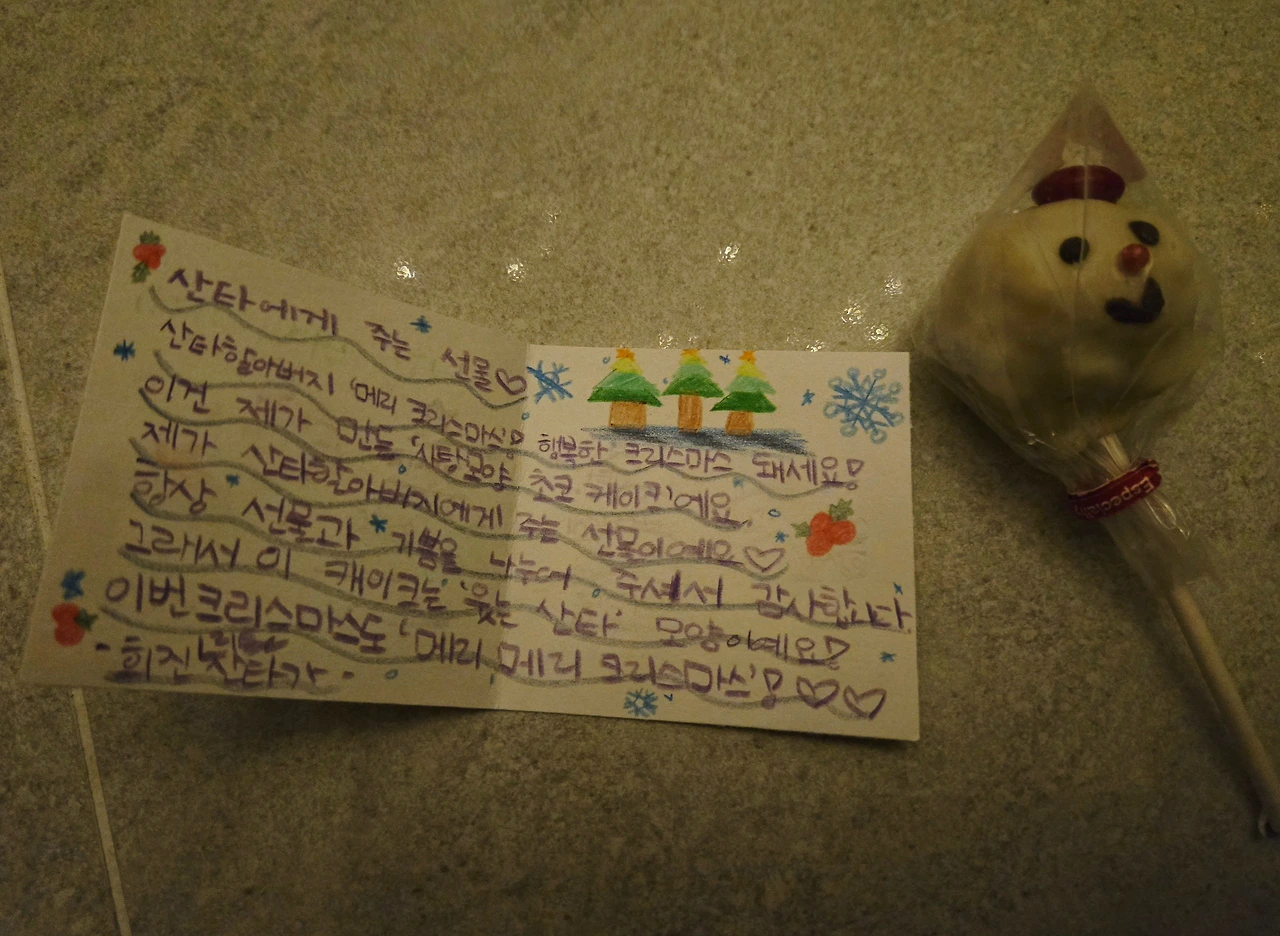 산타에게 주는 선물♡
산타할아버지 '메리 크리스마스'! 행복한 크리스마스 돼세요!
이건 제가 만든 '사탕모양 초코 케이크'예요.
제가 산타할아버지에게 주는 선물이예요♡
항상 선물과 기쁨을 나누어 주셔서 감사합니다.
그래서 이 캐이크는 '웃는 산타' 모양이예요!
이번 크리스마스도 '메리 메리 크리스마스'! ♡♡
-희진 산타가-
Especially